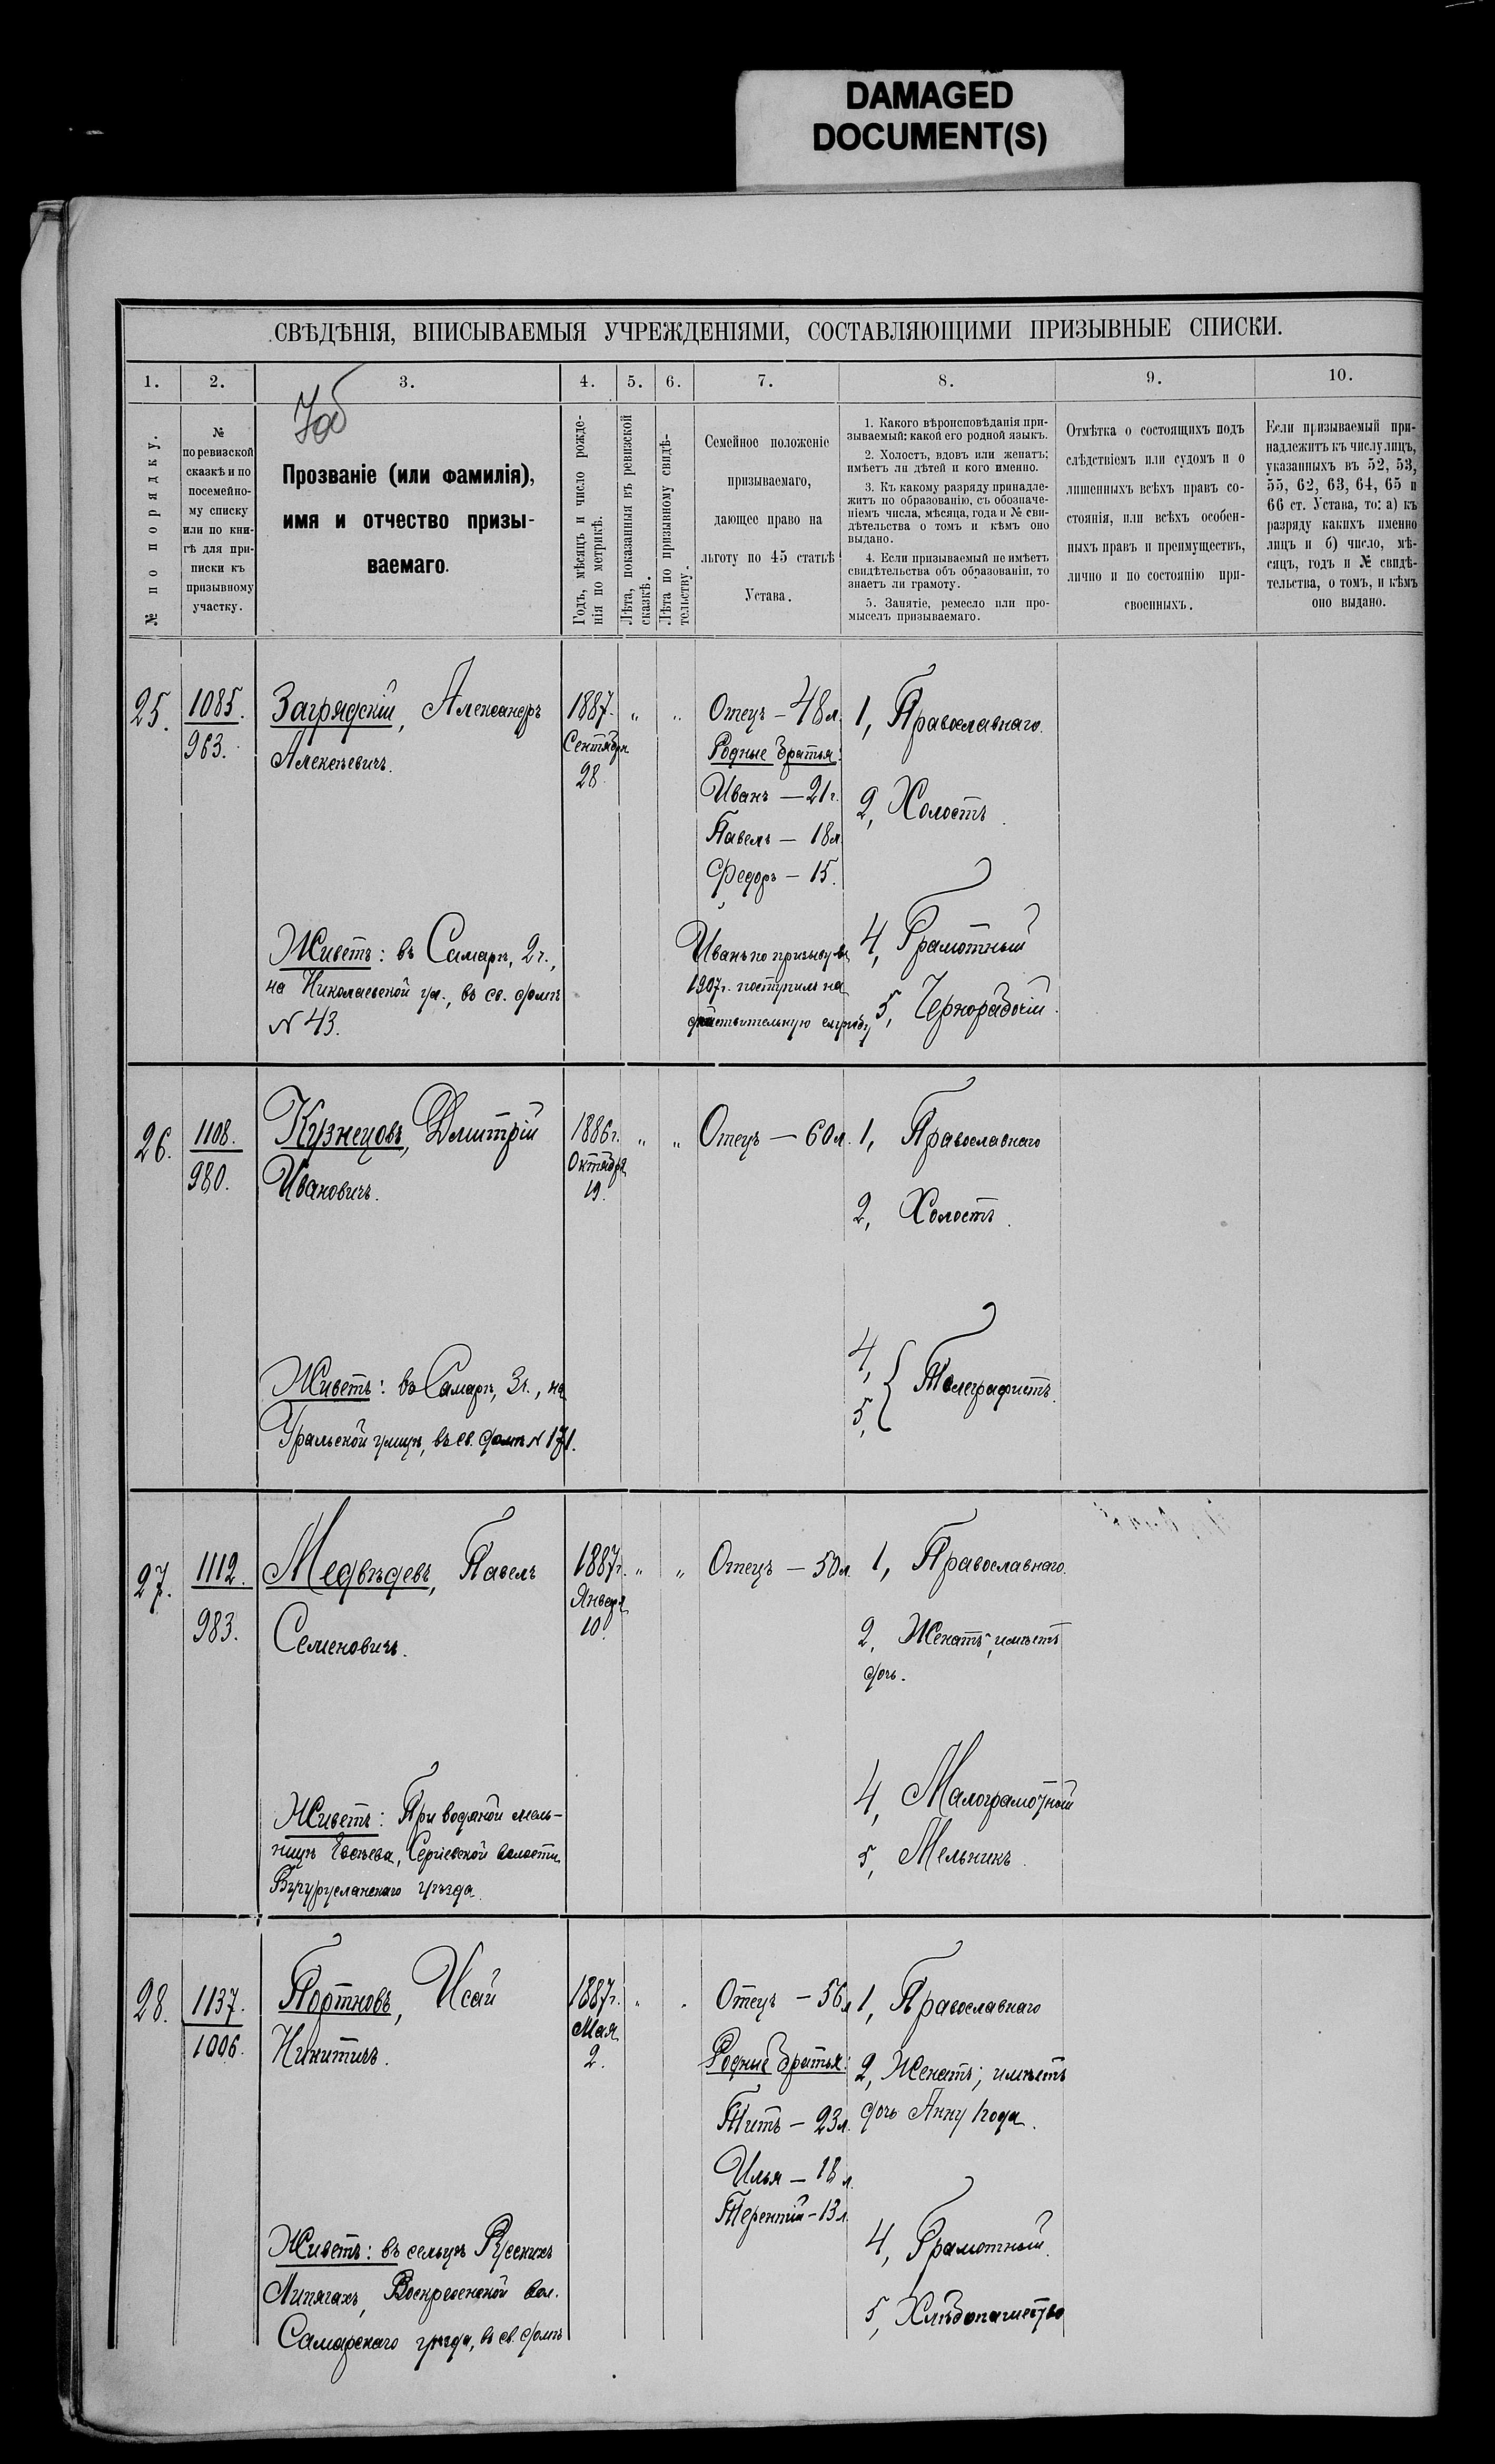 DAMAGED
DOCUMENT(S)
СВѢДѢНІЯ, ВПИСЫВАЕМЫЯ УЧРЕЖДЕНІЯМИ, СОСТАВЛЯЮЩИМИ ПРИЗЫВНЫЕ СПИСКИ.
1.
2.
3.
4.
5.
6.
7.
8.
9.
10.
№ по порядку.
№
по ревизской
сказкѣ и по
посемейно-
му списку
или по кни-
гѣ для при-
писки къ
призывному
участку.
Прозваніе (или фамилія),
имя и отчество призы-
ваемаго.
Годъ, мѣсяцъ и число рожде-
нія по метрикѣ.
Лѣта, показанныя въ ревизской
сказкѣ.
Лѣта по призывному свидѣ-
тельству.
Семейное положеніе
призываемаго,
дающее право на
льготу по 45 статьѣ
Устава.
1. Какого вѣроисповѣданія при-
зываемый; какой его родной языкъ.
2. Холостъ, вдовъ или женатъ;
имѣетъ ли дѣтей и кого именно.
3. Къ какому разряду принадле-
житъ по образованію, съ обозначе-
ніемъ числа, мѣсяца, года и № сви-
дѣтельства о томъ и кѣмъ оно
выдано.
4. Если призываемый не имѣетъ
свидѣтельства объ образованіи, то
знаетъ ли грамоту.
5. Занятіе, ремесло или про-
мыселъ призываемаго.
Отмѣтка о состоящихъ подъ
слѣдствіемъ или судомъ и о
лишенныхъ всѣхъ правъ со-
стоянія, или всѣхъ особен-
ныхъ правъ и преимуществъ,
лично и по состоянію при-
своенныхъ.
Если призываемый при-
надлежитъ къ числу лицъ,
указанныхъ въ 52, 53,
55, 62, 63, 64, 65 и
66 ст. Устава, то: а) къ
разряду какихъ именно
лицъ и б) число, мѣ-
сяцъ, годъ и № свидѣ-
тельства, о томъ, и кѣмъ
оно выдано.
25.
1085.
963.
Загрядскій, Александръ
Алексѣевичъ.
Живетъ: въ Самарѣ, 2 ч.,
на Николаевской ул., въ св. домѣ
№ 43.
1887.
Сентября
28.
"
"
Отецъ – 48 л.
Родные братья:
Иванъ – 21 г.
Павелъ – 18 л.
Федоръ – 15.
Иванъ по призыву въ
1907 г. поступилъ на
дѣйствительную службу
1, Православнаго.
2, Холостъ.
4, Грамотный
5, Чернорабочій.
26.
1108.
980.
Кузнецовъ, Дмитрій
Ивановичъ.
Живетъ: въ Самарѣ, 3 ч., на
Уральской улицѣ, въ св. домѣ № 171.
1886 г.
Октября
19.
"
"
Отецъ – 60 л.
1, Православнаго
2, Холостъ.
4,
5, { Телеграфистъ.
27.
1112.
983.
Медвѣдевъ, Павелъ
Семеновичъ.
Живетъ: При водяной мель-
ницѣ Евсѣева, Сергіевской волости,
Бугурусланскаго уѣзда.
1887 г.
Января
10.
"
"
Отецъ – 50 л.
1, Православнаго.
2, Женатъ, имѣетъ
дочь.
4, Малограмотный
5, Мельникъ.
28.
1137.
1006.
Портновъ, Исай
Никитичъ.
Живетъ: въ сельцѣ Русскихъ
Липягахъ, Воскресенской вол.
Самарскаго уѣзда, въ св. домѣ
1887 г.
Мая
2.
"
"
Отецъ – 56 л
Родные братья:
Титъ – 23 л.
Илья – 18 л.
Терентій – 13 л.
1, Православнаго
2, Женатъ; имѣетъ
дочь Анну 1 года.
4, Грамотный.
5, Хлѣбопашество